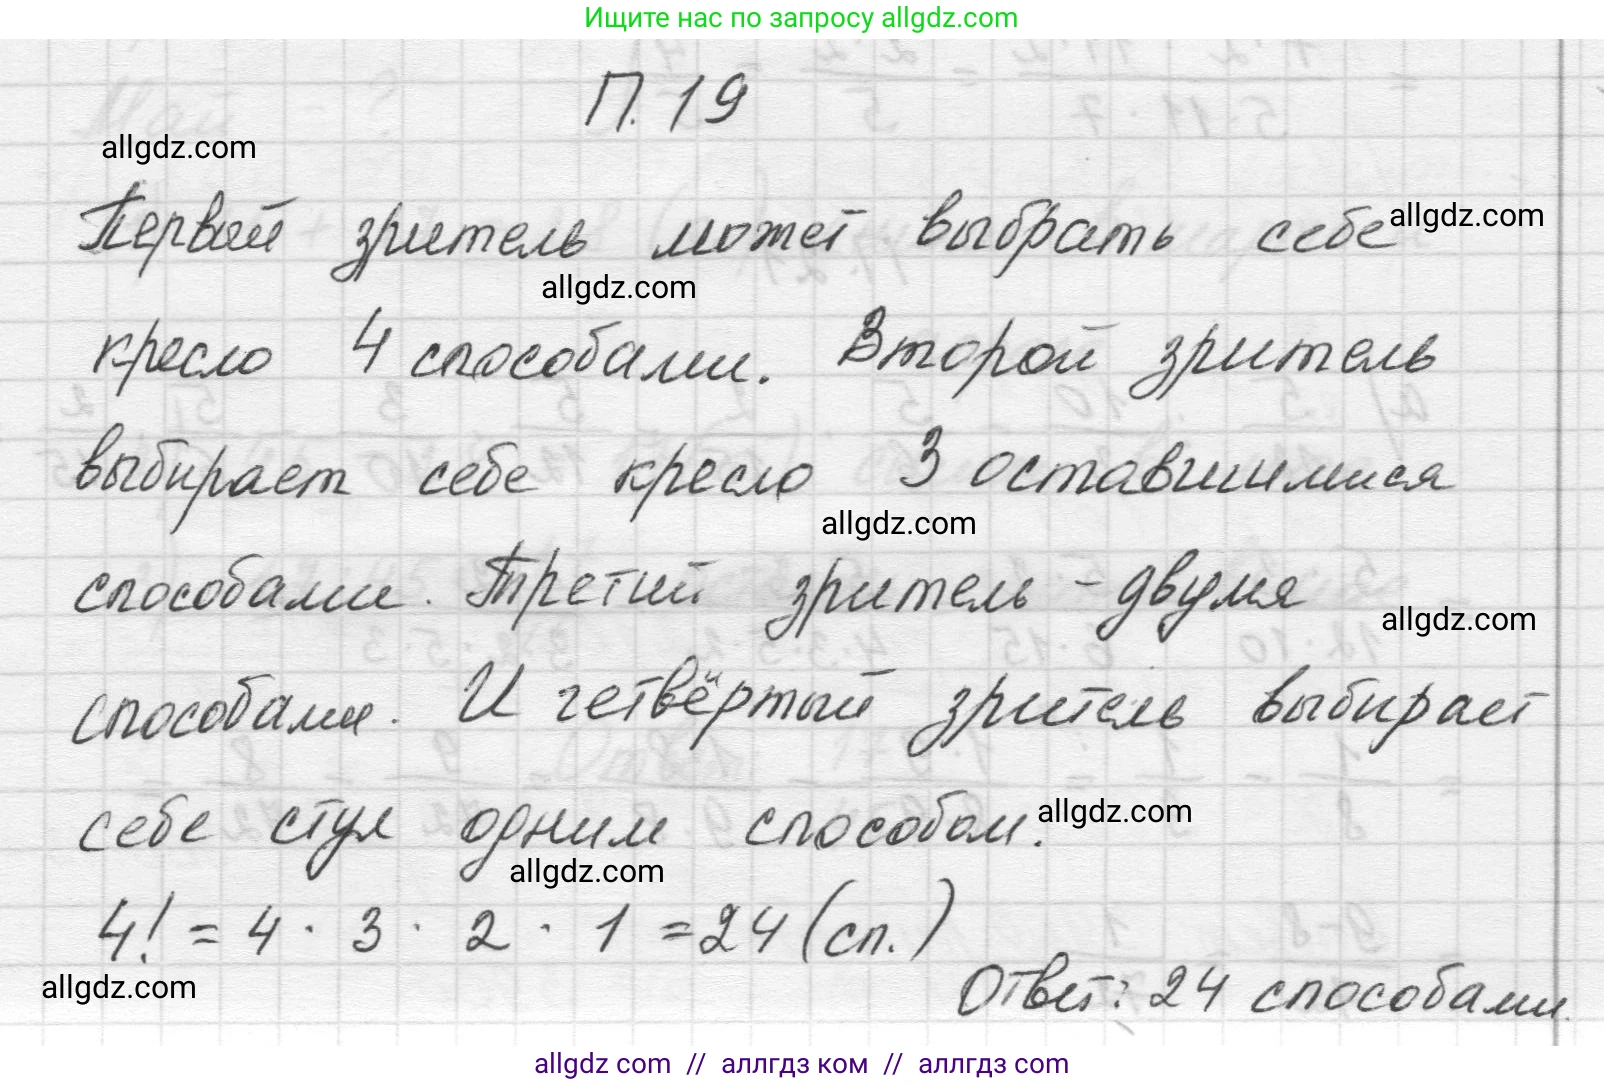 Ищите нас по запросу allgdz.com
П. 19
allgdz.com
Первый зритель может выбрать себе
allgdz.com
allgdz.com
кресло 4 способами. Второй зритель
выбирает себе кресло 3 оставшимися
allgdz.com
способами. Третий зритель – двумя
allgdz.com
способами. И четвёртый зритель выбирает
себе стул одним способом.
allgdz.com
allgdz.com
4! = 4 · 3 · 2 · 1 = 24 (сп.)
allgdz.com
Ответ: 24 способами.
allgdz.com // аллгдз ком // аллгдз.com